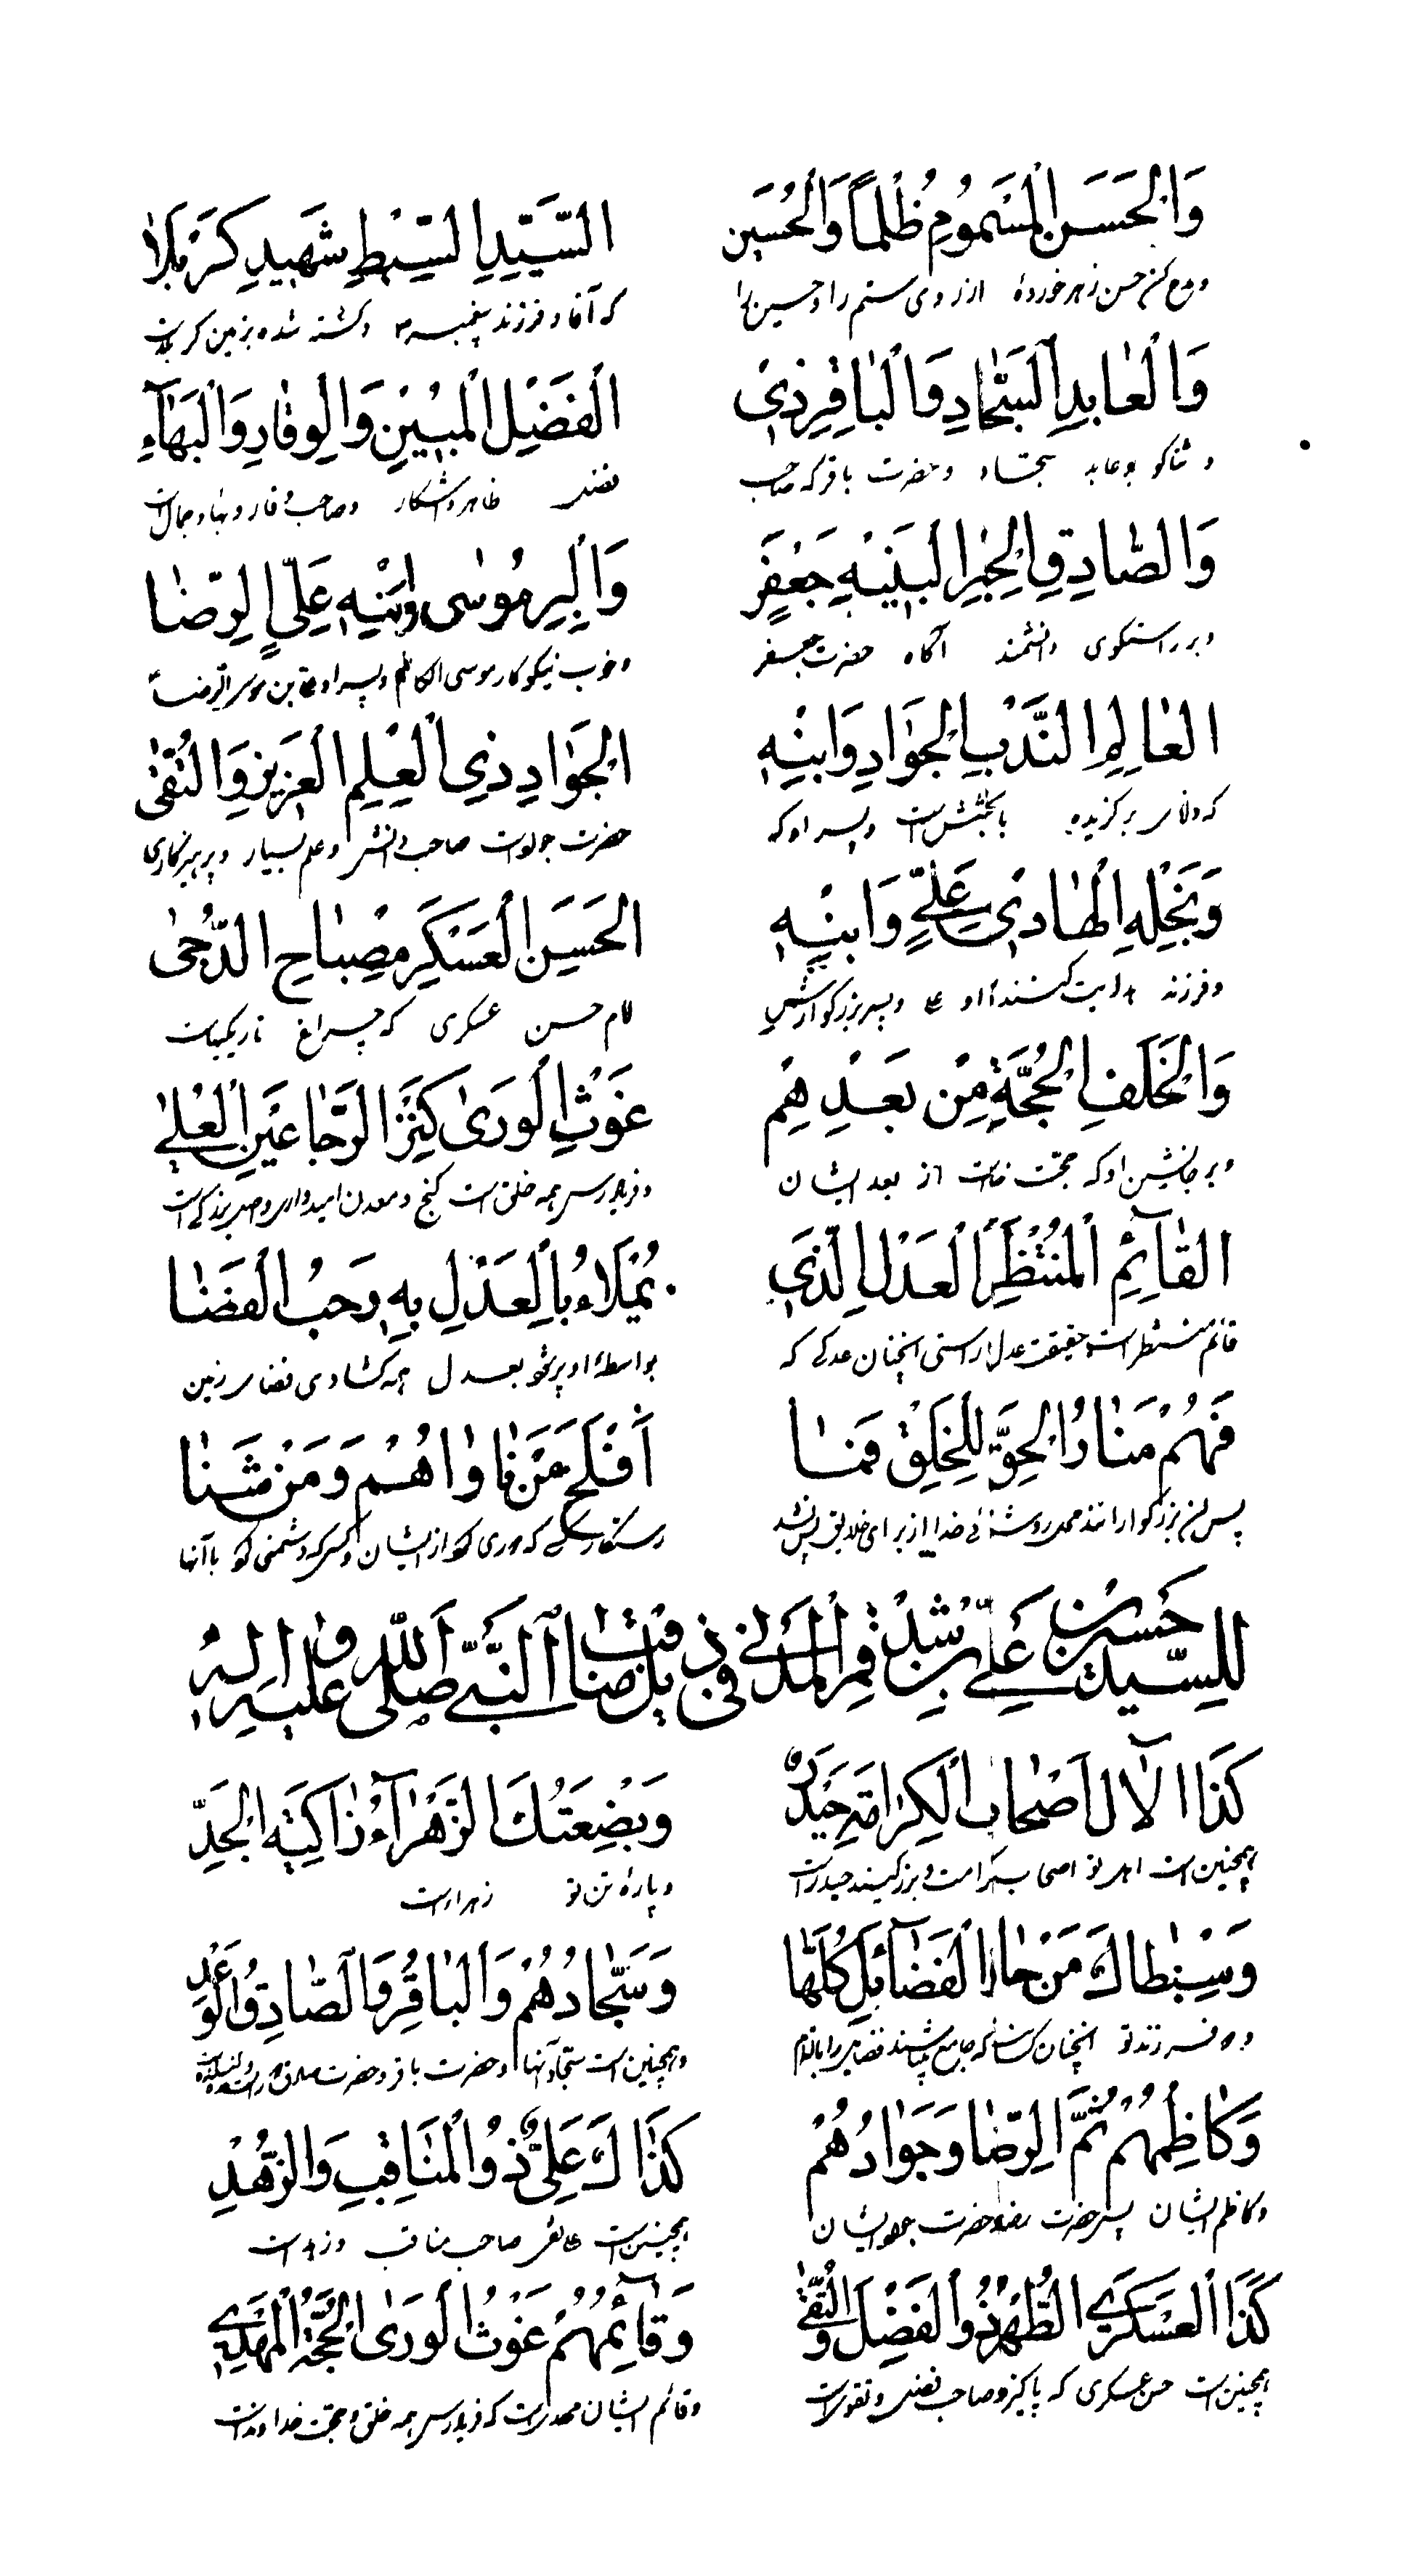 وَالْحَسَنِ الْمَسْمُومِ ظُلْماً وَالْحُسَيْنِ
السَّيِّدِ السِّبْطِ شَهِيدِ كَرْبَلاٰ
ومدح کن حسن زهر خوردهٔ از روی ستم را و حسین را
که آقا و فرزند پیغمبر و کشته شده بزمین کربلاست
وَالْعٰابِدِ السَّجّٰادِ وَالْبٰاقِرِ ذِي
الْفَضْلِ الْمُبِيْنِ وَالْوِقٰارِ وَالْبَهٰآءِ
و ثناگو بر عابد سجّاد و حضرت باقر که صاحب
فضل ظاهر و آشکار و صاحب وقار و بهاء و جمال است
وَالصّٰادِقِ الْحِبْرِ النَبِيْهِ جَعْفَرٍ
وَالْبِرِ مُوسٰى وابْنِهِ عَلِيِّ الرِّضٰا
و بر راستگوی دانشمند آگاه حضرت جعفر
و خوب نیکوکار موسی الکاظم و پسر او علی بن موسی الرضا
الْعٰالِمِ النَّدْبِ الْجَوٰادِ وَابْنِهِ
الْجَوٰادِ ذِي الْعِلْمِ الْعَزِيزِ وَالتُّقٰى
که دانای برگزیده با بخشش است و پسر او که
حضرت جواد است صاحب دانش و علم بسیار و پرهیزکاری
وَنَجْلِهِ الْهٰادِي عَلِيٍّ وَابْنِهِ
الْحَسَنِ الْعَسْكَرِ مِصْبٰاحِ الدُّجٰى
و فرزند هدایت کنندهٔ او علی و پسر بزرگوارش
امام حسن عسکری که چراغ تاریکیهاست
وَالْخَلَفِ الْحُجَّةِ مِنْ بَعْدِهِمْ
غَوْثِ الْوَرىٰ كَنْزِ الرَّجٰا عَيْنِ الْعُلىٰ
و بر جانشین او که حجّت خداست از بعد ایشان
و فریادرس همه خلق است گنج و معدن امیدواری و اصل بزرگی است
الْقٰآئِمِ الْمُنْتَظَرِ الْعَدْلِ الَّذِي
يُمْلَاءُ بِالْعَدْلِ بِهِ رَحْبُ الْفَضٰا
قائم منتظر است حقیقت عدل و راستی آنچنان عدلی که
بواسطهٔ او پر شود بعدل همه گشادی فضای زمین
فَهُمْ مَنٰارُ الْحَقِّ لِلْخَلْقِ فَمٰا
أَفْلَحَ مَنْ نٰاوٰاهُمْ وَمَنْ شَنٰا
للسيّد حسين بن علي بن شدقم المدني في ذيل مناقب النَّبِي صلى الله عليه واله
كَذَا الْآلُ اَصْحٰابُ الْكِرٰامَةِ حَيْدَرٌ
وَبَضْعَتُكَ الزَّهْرٰآءُ زٰاكِيَةُ الْجَدِّ
همچنین است اهل تو اصحاب کرامت و بزرگیند حیدر است
و پارهٔ تن تو زهراء است
وَسِبْطٰاكَ مَنْ حٰازَ الْفَضٰآئِلَ كُلَّهٰا
وَسَجّٰادُهُمْ وَالْبٰاقِرُ وَالصّٰادِقُ الْوَعْدِ
و دو فرزند تو
و همچنین است سجّاد آنها و حضرت باقر و حضرت صادق
وَكٰاظِمُهُمْ ثُمَّ الرِّضٰا وَجَوٰادُهُمْ
كَذٰاكَ عَلِيٌّ ذُو الْمَنٰاقِبِ وَالزُّهْدِ
و کاظم ایشان پس حضرت رضا و حضرت جواد ایشان
همچنین است علی نقی صاحب مناقب و زهد است
كَذَا الْعَسْكَرِيُّ الطُّهْرُ ذُو الْفَضْلِ وَالتُّقىٰ
وَقٰآئِمُهُمْ غَوْثُ الْوَرىٰ الْحُجَّةُ الْمَهْدِيْ
همچنین است حسن عسکری که پاکیزه و صاحب فضل و تقوی است
و قائم ایشان مهدیست که فریادرس همه خلق و حجّت خداوند است